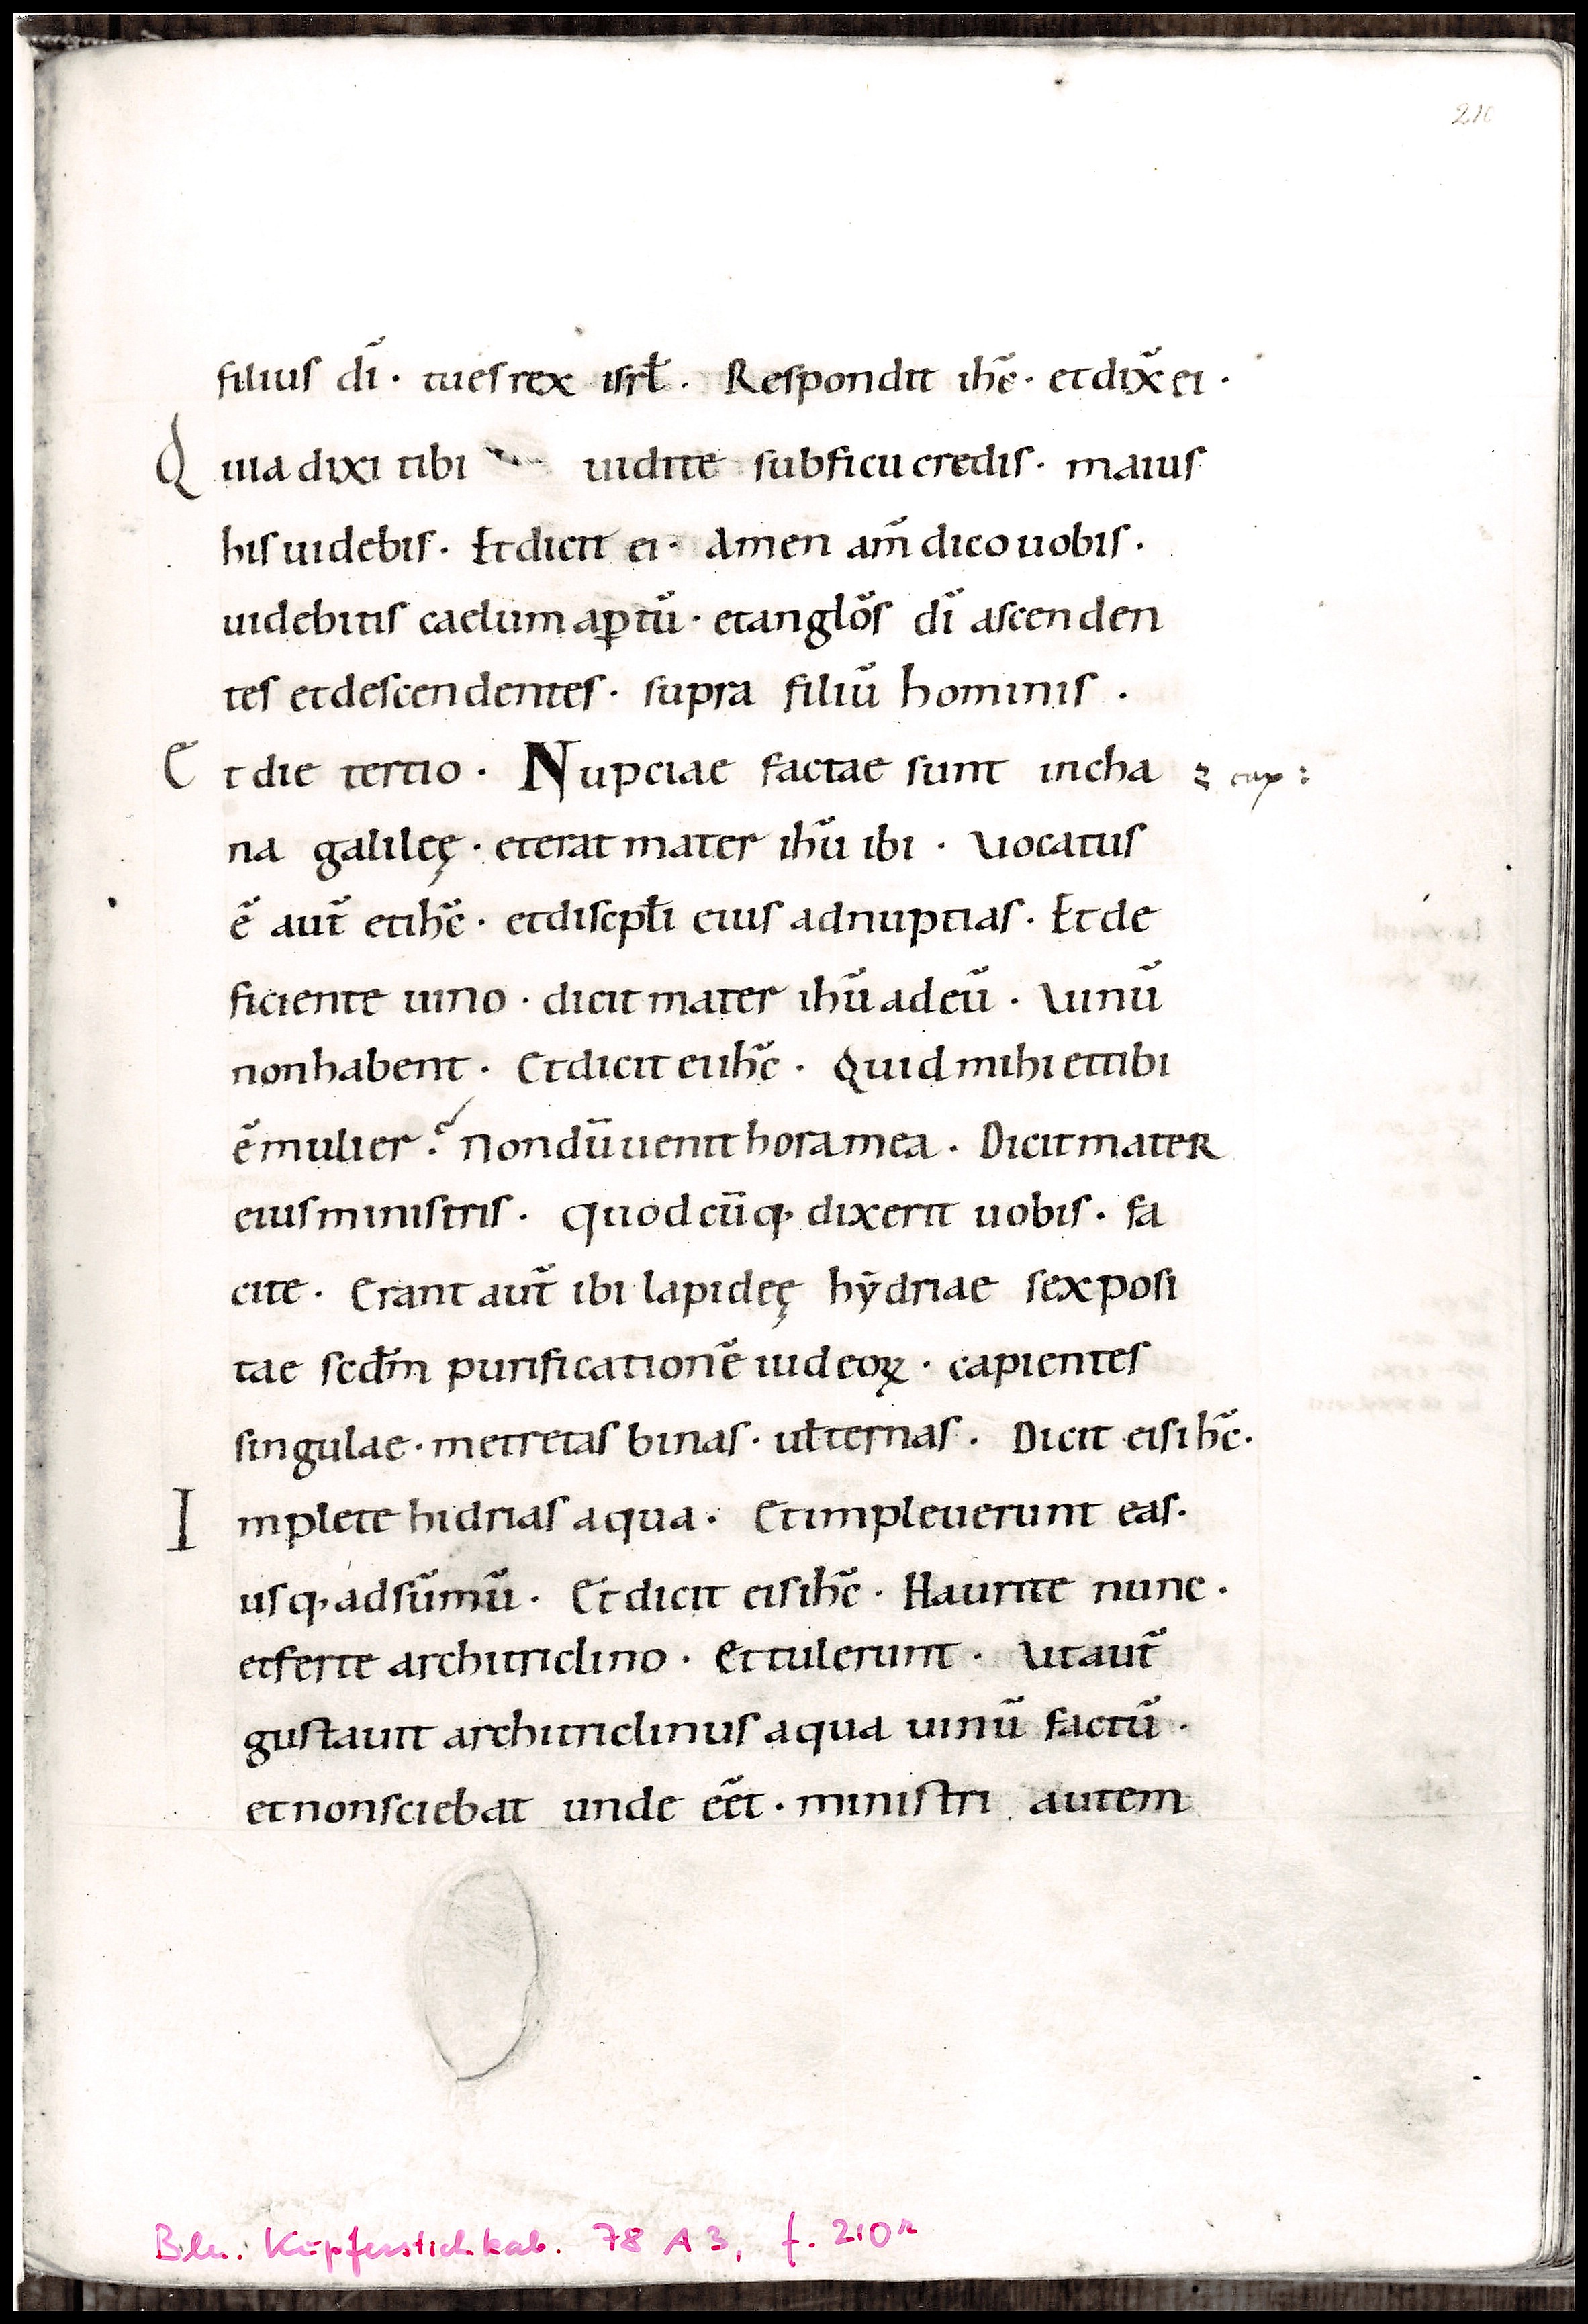 210
filius dī · tu es rex isrƚ · Respondit ihc̄ · et dix̄ ei ·
Quia dixi tibi uidi te sub ficu credis · maius
his uidebis · Et dicit ei · Amen am̄ dico uobis ·
uidebitis caelum aꝑtū · et anglōs dī ascenden
tes et descendentes · supra filiū hominis ·
Et die tertio · Nupciae factae sunt in cha 2 cap :
na galileę · et erat mater ihū ibi · Vocatus
ē aut̄ et ihc̄ · et discipƚi eius ad nuptias · Et de
ficiente uino · dicit mater ihū ad eū · Vinū
non habent · Et dicit ei ihc̄ · Quid mihi et tibi
ē mulier ? Nondū uenit hora mea · Dicit mater
eius ministris · Quodcūq; dixerit uobis · fa
cite · Erant aut̄ ibi lapideę hẏdriae sex posi
tae scđm purificationē iudeoꝝ · capientes
singulae · metretas binas · uƚ ternas · Dicit eis ihc̄ ·
Implete hidrias aqua · Et impleuerunt eas ·
usq; ad sūmū · Et dicit eis ihc̄ · Haurite nunc ·
et ferte architriclino · Et tulerunt · Vt aut̄
gustauit architriclinus aqua uinū factū ·
et non sciebat unde eēt · ministri autem
Bln. Kupferstichkab. 78 A 3, f. 210r